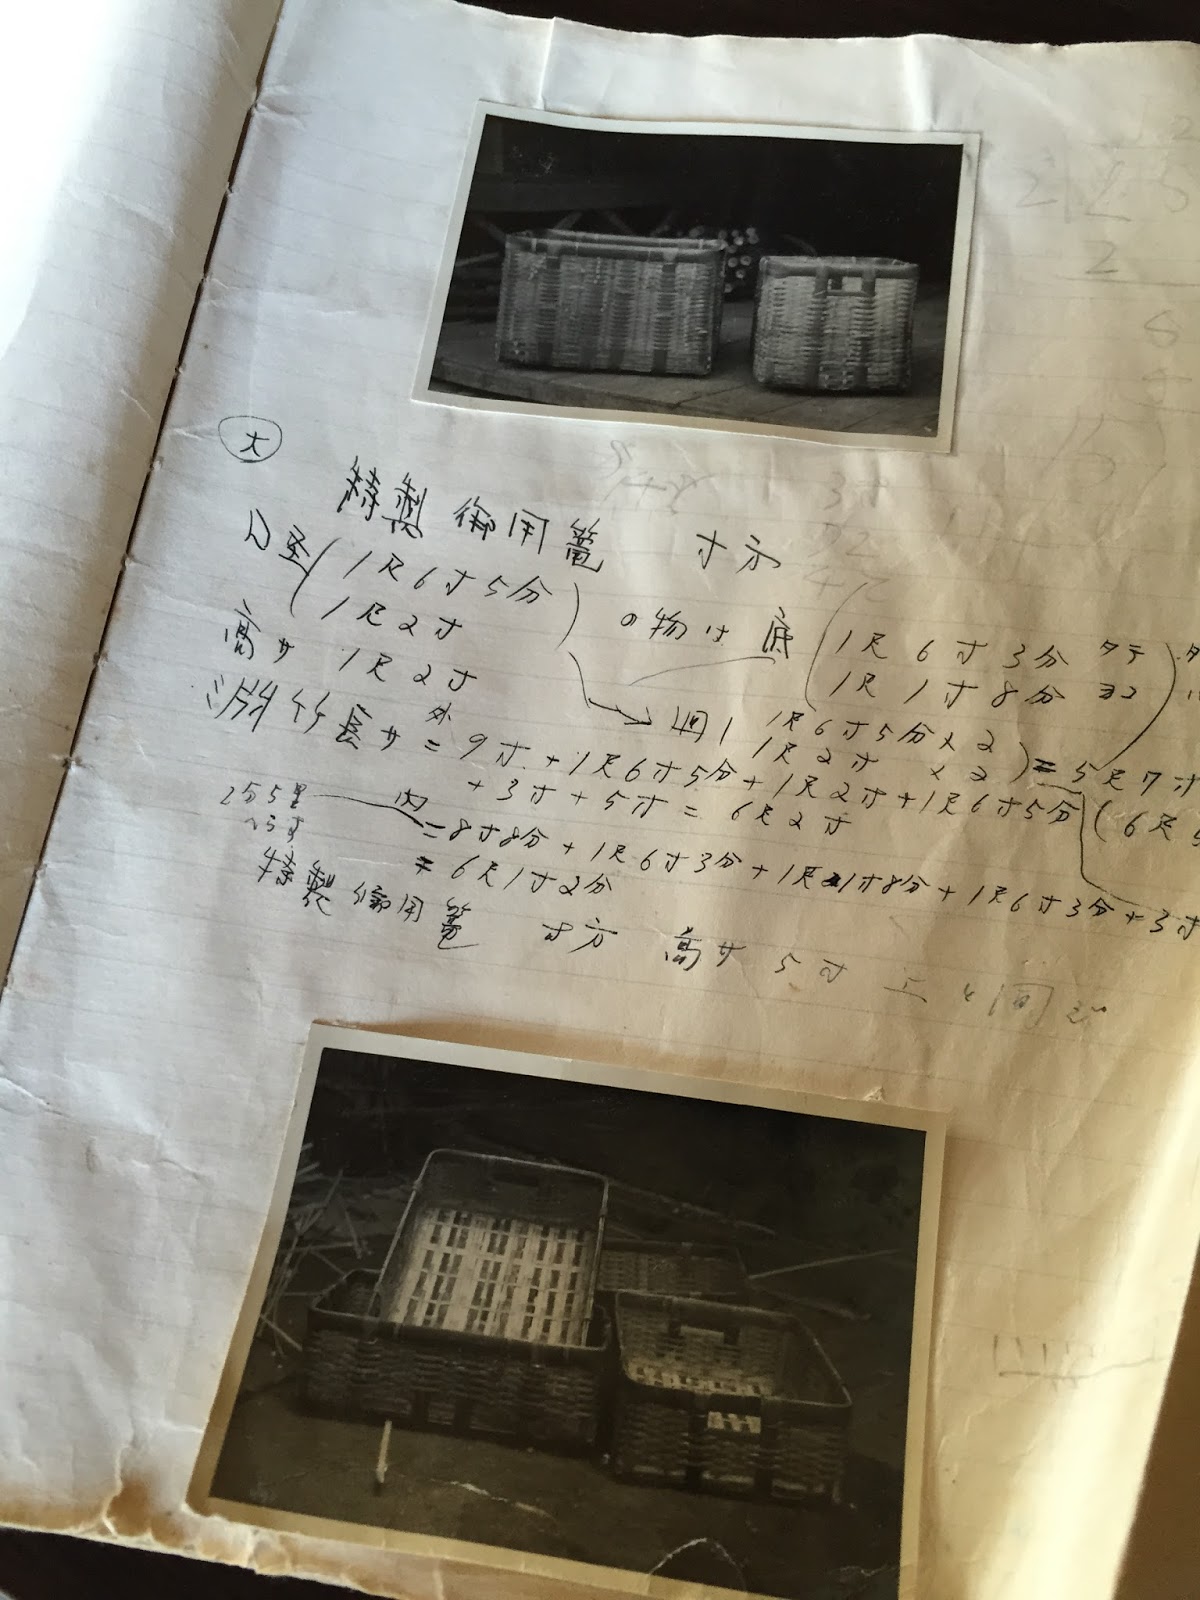 大
特製御用篭 寸方
口径(1尺6寸5分
1尺2寸) の物は 底(1尺6寸3分 タテ
1尺1寸8分 ヨコ)
高サ 1尺2寸
廻り 1尺6寸5分×2
1尺2寸 ×2) = 5尺7寸
竹長サ 外 = 9寸+1尺6寸5分+1尺2寸+1尺6寸5分
+3寸+5寸=6尺2寸 (6尺
2分5厘
へらす
内 = 8寸8分+1尺6寸3分+1尺1寸8分+1尺6寸3分+3寸
= 6尺1寸2分
特製御用篭 寸方 高サ 5寸 上と同じ